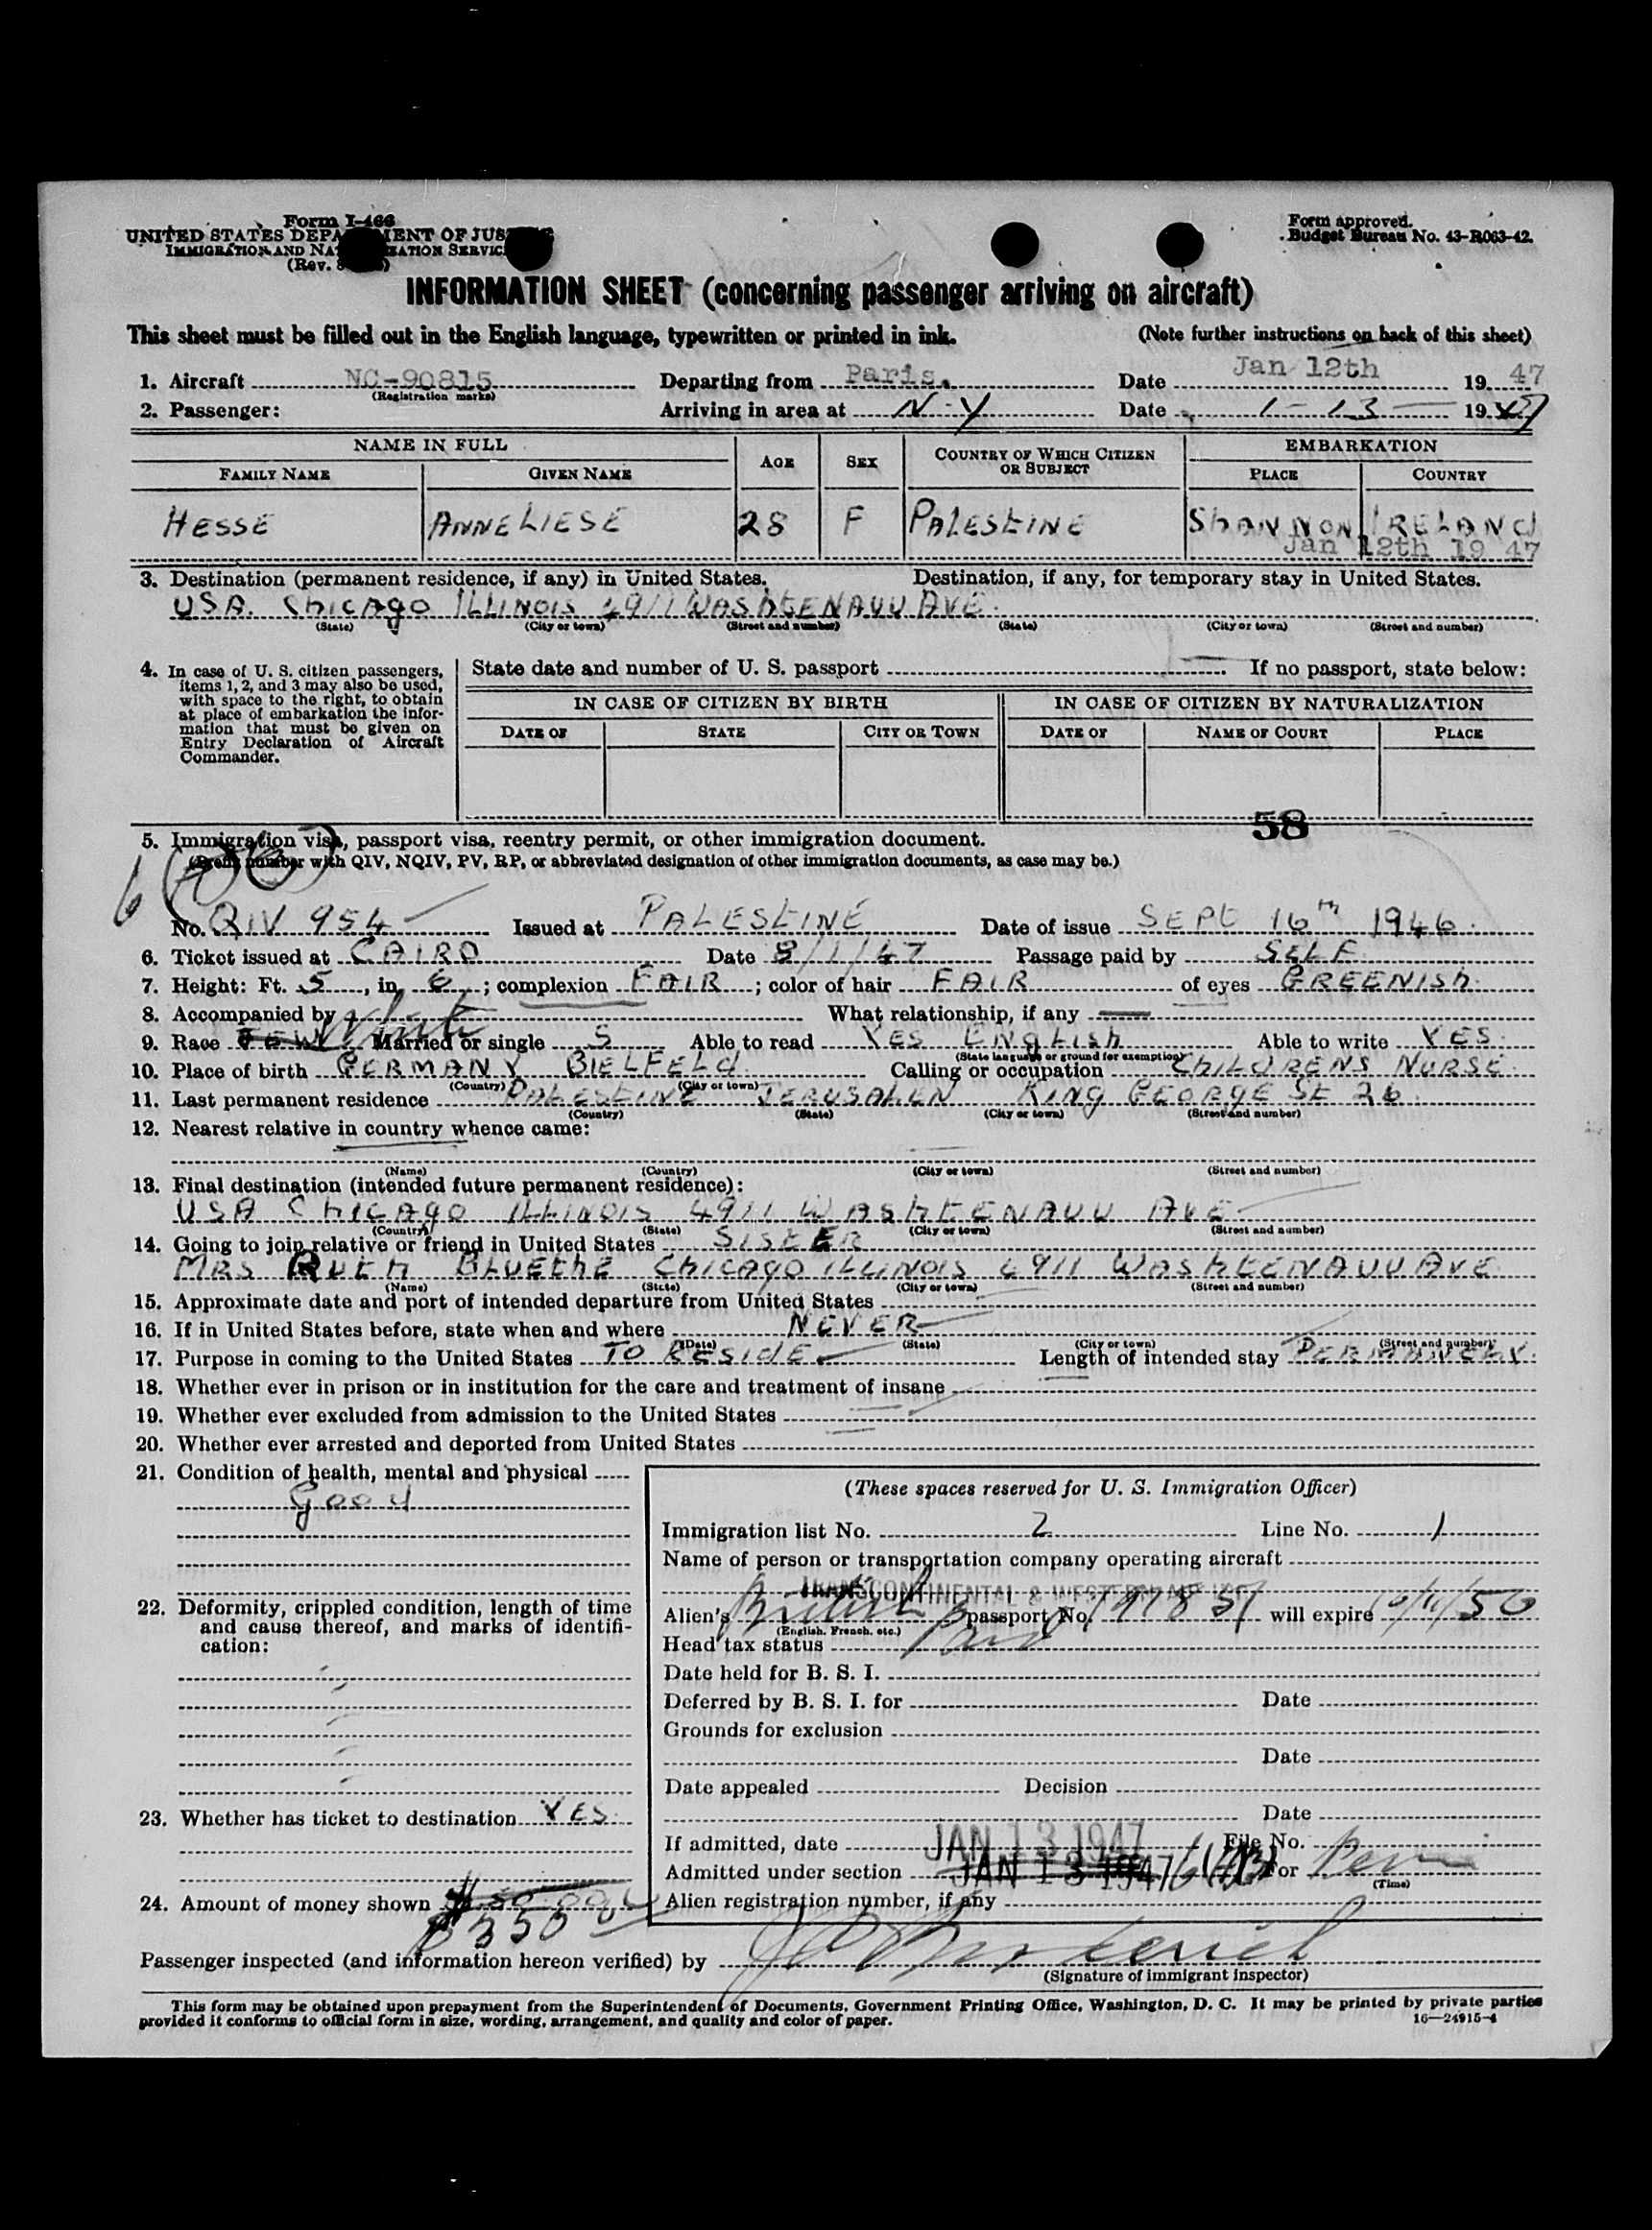 Form I-466
UNITED STATES DEPARTMENT OF JUSTICE
IMMIGRATION AND NATURALIZATION SERVICE
(Rev.
Form approved.
Budget Bureau No. 43-R063-42.
INFORMATION SHEET (concerning passenger arriving on aircraft)
This sheet must be filled out in the English language, typewritten or printed in ink. (Note further instructions on back of this sheet)
1. Aircraft NC-90815 Departing from Paris. Date Jan 12th 19 47
(Registration marks)
2. Passenger: Arriving in area at N-Y Date 1-13- 19 47
NAME IN FULL AGE SEX COUNTRY OF WHICH CITIZEN OR SUBJECT EMBARKATION
FAMILY NAME GIVEN NAME PLACE COUNTRY
HESSE ANNELIESE 28 F PALESTINE SHANNON IRELAND
Jan 12th 19 47
3. Destination (permanent residence, if any) in United States. Destination, if any, for temporary stay in United States.
USA. Chicago ILLINOIS 4911 WASHTENAUU AVE.
(State) (City or town) (Street and number) (State) (City or town) (Street and number)
4. In case of U. S. citizen passengers,
items 1, 2, and 3 may also be used,
with space to the right, to obtain
at place of embarkation the infor-
mation that must be given on
Entry Declaration of Aircraft
Commander.
State date and number of U. S. passport If no passport, state below:
IN CASE OF CITIZEN BY BIRTH IN CASE OF CITIZEN BY NATURALIZATION
DATE OF STATE CITY OR TOWN DATE OF NAME OF COURT PLACE
58
5. Immigration visa, passport visa, reentry permit, or other immigration document.
(Prefix number with QIV, NQIV, PV, RP, or abbreviated designation of other immigration documents, as case may be.)
No. QIV 954 Issued at PALESTINE Date of issue SEPT 16th 1946.
6. Ticket issued at CAIRO Date 8/1/47 Passage paid by SELF
7. Height: Ft. 5, in. 6; complexion FAIR; color of hair FAIR of eyes GREENISH.
8. Accompanied by What relationship, if any
9. Race JEW White Married or single S Able to read YES ENGLISH Able to write YES.
(State language or ground for exemption)
10. Place of birth GERMANY BIELFELD. Calling or occupation CHILDRENS NURSE.
(Country) (City or town)
11. Last permanent residence PALESTINE JERUSALEN KING GEORGE ST 26.
(Country) (State) (City or town) (Street and number)
12. Nearest relative in country whence came:
(Name) (Country) (City or town) (Street and number)
13. Final destination (intended future permanent residence):
USA CHICAGO ILLINOIS 4911 WASHTEENAUU AVE
(Country) (State) (City or town) (Street and number)
14. Going to join relative or friend in United States SISTER
MRS RUTH BLUETHE CHICAGO ILLINOIS 4911 WASHTEENAUU AVE
(Name) (State) (City or town) (Street and number)
15. Approximate date and port of intended departure from United States
16. If in United States before, state when and where NEVER
(Date) (State) (City or town) (Street and number)
17. Purpose in coming to the United States TO RESIDE Length of intended stay
18. Whether ever in prison or in institution for the care and treatment of insane
19. Whether ever excluded from admission to the United States
20. Whether ever arrested and deported from United States
21. Condition of health, mental and physical
Good
22. Deformity, crippled condition, length of time
and cause thereof, and marks of identifi-
cation:
23. Whether has ticket to destination YES.
24. Amount of money shown
(These spaces reserved for U. S. Immigration Officer)
Immigration list No. 2 Line No. 1
Name of person or transportation company operating aircraft
TRANSCONTINENTAL & WESTERN AIR
Alien's British passport No. will expire
(English, French, etc.)
Head tax status Paid
Date held for B. S. I.
Deferred by B. S. I. for Date
Grounds for exclusion
Date
Date appealed Decision
Date
If admitted, date JAN 13 1947 File No.
Admitted under section JAN 13 1947 For
(Time)
Alien registration number, if any
Passenger inspected (and information hereon verified) by
(Signature of immigrant inspector)
This form may be obtained upon prepayment from the Superintendent of Documents, Government Printing Office, Washington, D. C. It may be printed by private parties
provided it conforms to official form in size, wording, arrangement, and quality and color of paper. 16—24915-4